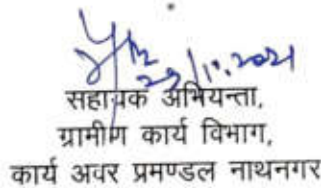 सहायक अभियन्ता,
ग्रामीण कार्य विभाग,
कार्य अवर प्रमण्डल नाथनगर